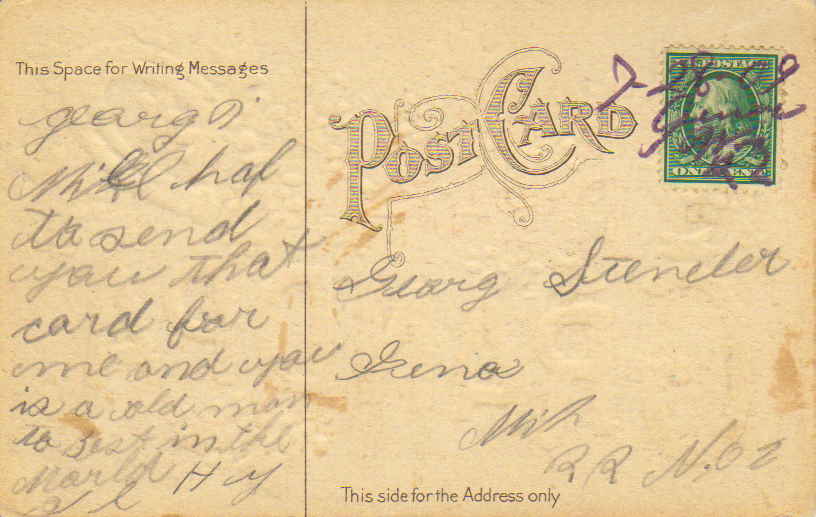 This Space for Writing Messages
georg
Mikel hal
to send
you that
card for
me and you
is a old man
to best in the
World H y
POST CARD
U.S. POSTAGE
ONE CENT
Georg Stendler
Mih
RR No 2
This side for the Address only